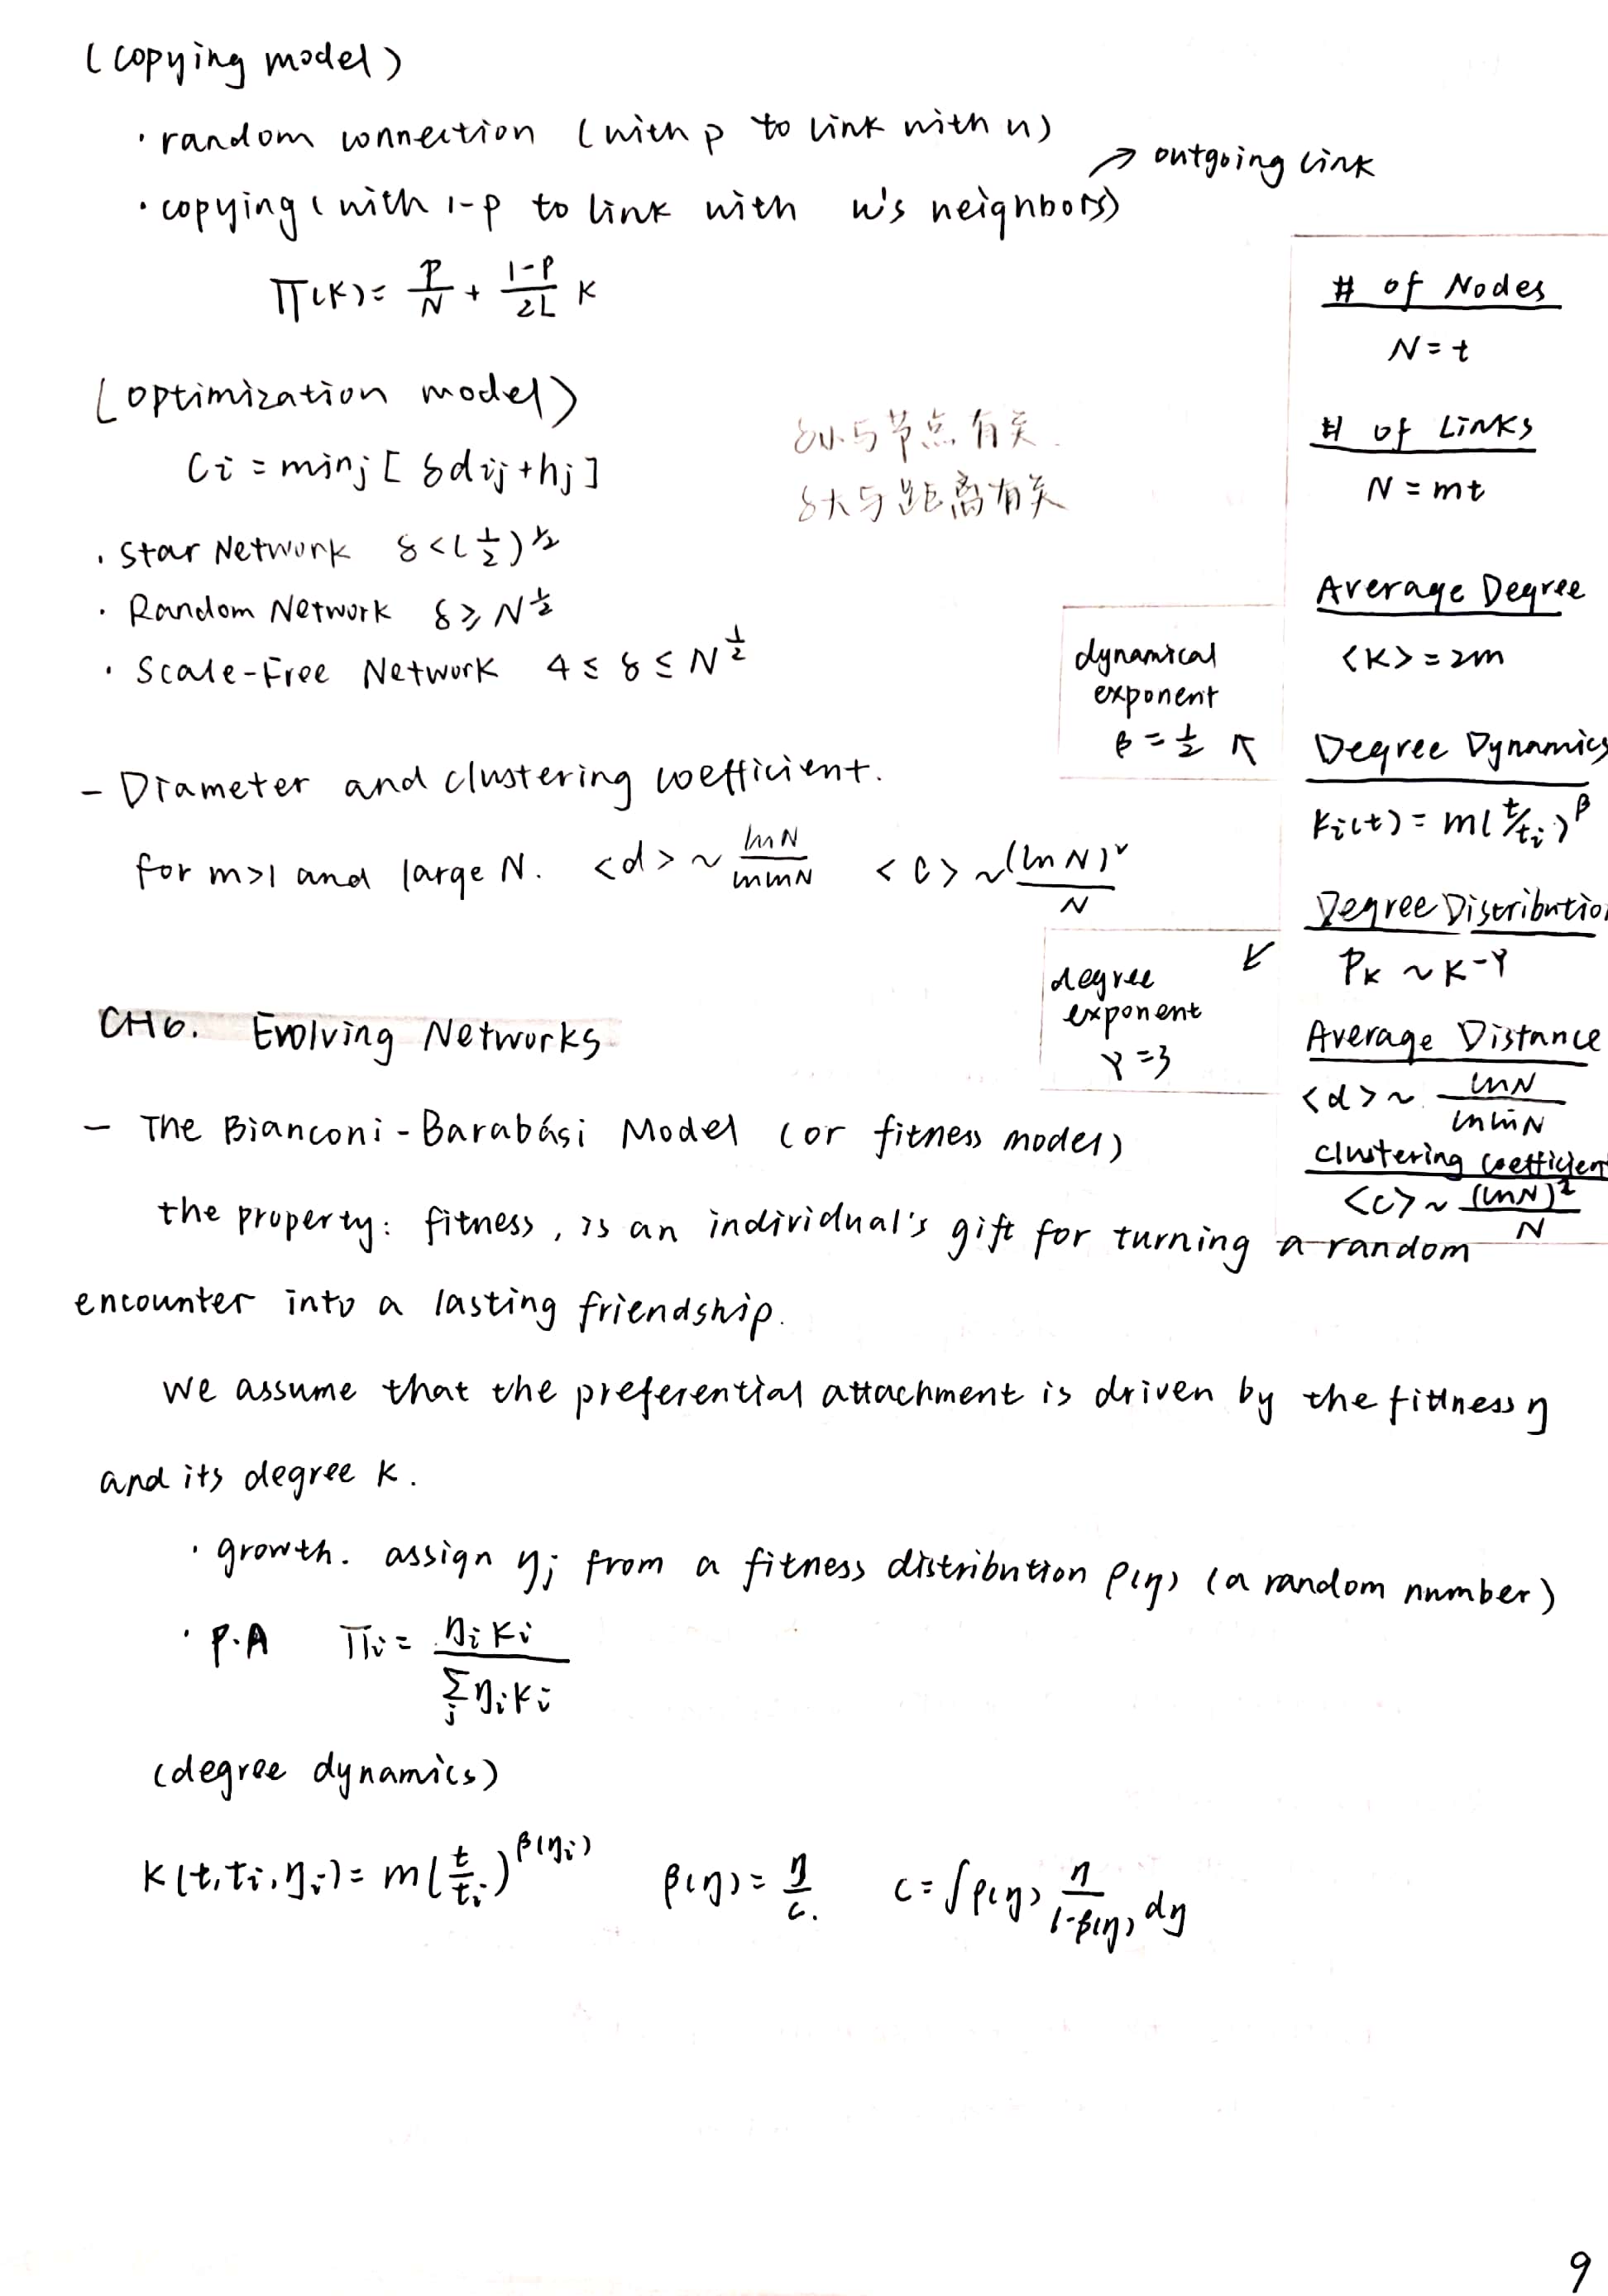 (copying model)
· random connection (with p to link with u)
↗ outgoing link
· copying (with 1-p to link with u's neighbors)
Π(k) = p/N + (1-p)/2L k
(optimization model)
Ci = minj [δdij + hj]
δ小与节点有关.
δ大与距离有关
· Star Network δ < (1/2)^1/2
· Random Network δ ≥ N^1/2
· Scale-Free Network 4 ≤ δ ≤ N^1/2
- Diameter and clustering coefficient.
for m>1 and large N. <d> ~ lnN/lnlnN <C> ~ (lnN)²/N
# of Nodes
N = t
# of Links
N = mt
Average Degree
<k> = 2m
Degree Dynamics
ki(t) = m(t/ti)^β
dynamical
exponent
β = 1/2 ↖
Degree Distribution
Pk ~ k^-γ
degree ↙
exponent
γ = 3
Average Distance
<d> ~ lnN/lnlnN
clustering coefficient
<C> ~ (lnN)²/N
CH6. Evolving Networks
- The Bianconi-Barabási Model (or fitness model)
the property: fitness, is an individual's gift for turning a random
encounter into a lasting friendship.
we assume that the preferential attachment is driven by the fittness η
and its degree k.
· growth. assign ηj from a fitness distribution ρ(η) (a random number)
· P.A Πi = ηiki / Σj ηiki
(degree dynamics)
k(t, ti, ηi) = m(t/ti)^β(ηi) β(η) = η/c. c = ∫ρ(η) η/(1-β(η)) dη
9